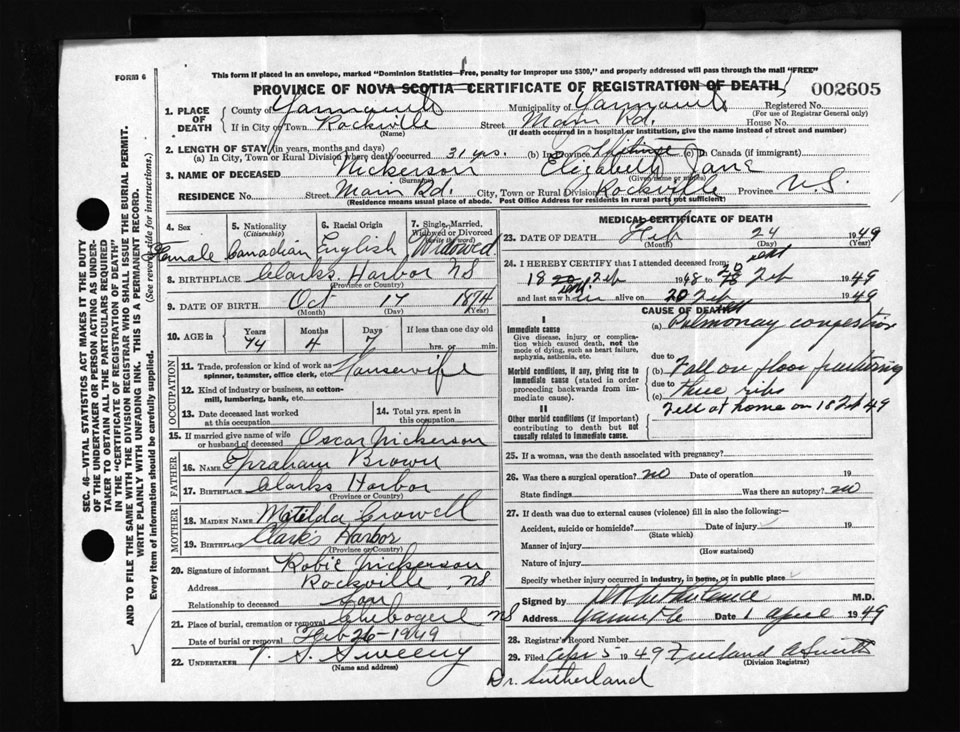 FORM 6
This form if placed in an envelope, marked "Dominion Statistics—Free, penalty for improper use $300," and properly addressed will pass through the mail "FREE"
PROVINCE OF NOVA SCOTIA—CERTIFICATE OF REGISTRATION OF DEATH
002605
1. PLACE OF DEATH
County of Yarmouth Municipality of Yarmouth Registered No.
(For use of Registrar General only)
If in City or Town Rockville Street Main Rd. House No.
(Name) (If death occurred in a hospital or institution, give the name instead of street and number)
2. LENGTH OF STAY (in years, months and days)
(a) In City, Town or Rural Division where death occurred 31 yrs. (b) In Province Lifetime (c) In Canada (if immigrant)
3. NAME OF DECEASED Nickerson Elizabeth Jane
(Surname) (Given name or names)
RESIDENCE No. Street Main Rd. City, Town or Rural Division Rockville Province N.S.
(Residence means usual place of abode. Post Office Address for residents in rural parts not sufficient)
SEC. 46—VITAL STATISTICS ACT MAKES IT THE DUTY
OF THE UNDERTAKER OR PERSON ACTING AS UNDER-
TAKER TO OBTAIN ALL THE PARTICULARS REQUIRED
IN THE "CERTIFICATE OF REGISTRATION OF DEATH"
AND TO FILE THE SAME WITH THE DIVISION REGISTRAR WHO SHALL ISSUE THE BURIAL PERMIT.
WRITE PLAINLY WITH UNFADING INK. THIS IS A PERMANENT RECORD.
Every item of information should be carefully supplied. (See reverse side for instructions.)
4. Sex 5. Nationality 6. Racial Origin 7. Single, Married, Widowed or Divorced
(Citizenship) (write the word)
Female Canadian English Widowed
8. BIRTHPLACE Clarks Harbor NS
(Province or Country)
9. DATE OF BIRTH Oct 17 1874
(Month) (Day) (Year)
10. AGE in Years Months Days If less than one day old
74 4 7 hrs. or min.
OCCUPATION
11. Trade, profession or kind of work as spinner, teamster, office clerk, etc. Housewife
12. Kind of industry or business, as cotton-mill, lumbering, bank, etc.
13. Date deceased last worked at this occupation
14. Total yrs. spent in this occupation
15. If married give name of wife or husband of deceased Oscar Nickerson
FATHER
16. NAME Epraham Brown
17. BIRTHPLACE Clarks Harbor
(Province or Country)
MOTHER
18. MAIDEN NAME Matilda Crowell
19. BIRTHPLACE Clarks Harbor
(Province or Country)
20. Signature of informant Robie Nickerson
Address Rockville NS
Relationship to deceased Son
21. Place of burial, cremation or removal Chebogue NS
Date of burial or removal Feb 26-1949
22. UNDERTAKER V. S. Sweeny
(Name and address)
MEDICAL CERTIFICATE OF DEATH
23. DATE OF DEATH Feb 24 1949
(Month) (Day) (Year)
24. I HEREBY CERTIFY that I attended deceased from:
18 Feb 1948 to Feb 1949
and last saw her alive on 20 Feb 1949
CAUSE OF DEATH
I
Immediate cause
Give disease, injury or complication which caused death, not the mode of dying, such as heart failure, asphyxia, asthenia, etc.
(a) Pulmonary congestion
due to
Morbid conditions, if any, giving rise to immediate cause (stated in order proceeding backwards from immediate cause).
(b) Fall on floor fracturing
due to
(c) three ribs
II
Other morbid conditions (if important) contributing to death but not causally related to immediate cause.
Fell at home on 18 Feb 49
25. If a woman, was the death associated with pregnancy?
26. Was there a surgical operation? no Date of operation 19
State findings Was there an autopsy? no
27. If death was due to external causes (violence) fill in also the following:—
Accident, suicide or homicide? Date of injury 19
(State which)
Manner of injury
(How sustained)
Nature of injury
Specify whether injury occurred in industry, in home, or in public place
Signed by M.D.
Address Date 1 April 1949
28. Registrar's Record Number
29. Filed Apr 5 1949 Freeland A Smith
(Division Registrar)
Dr. Sutherland